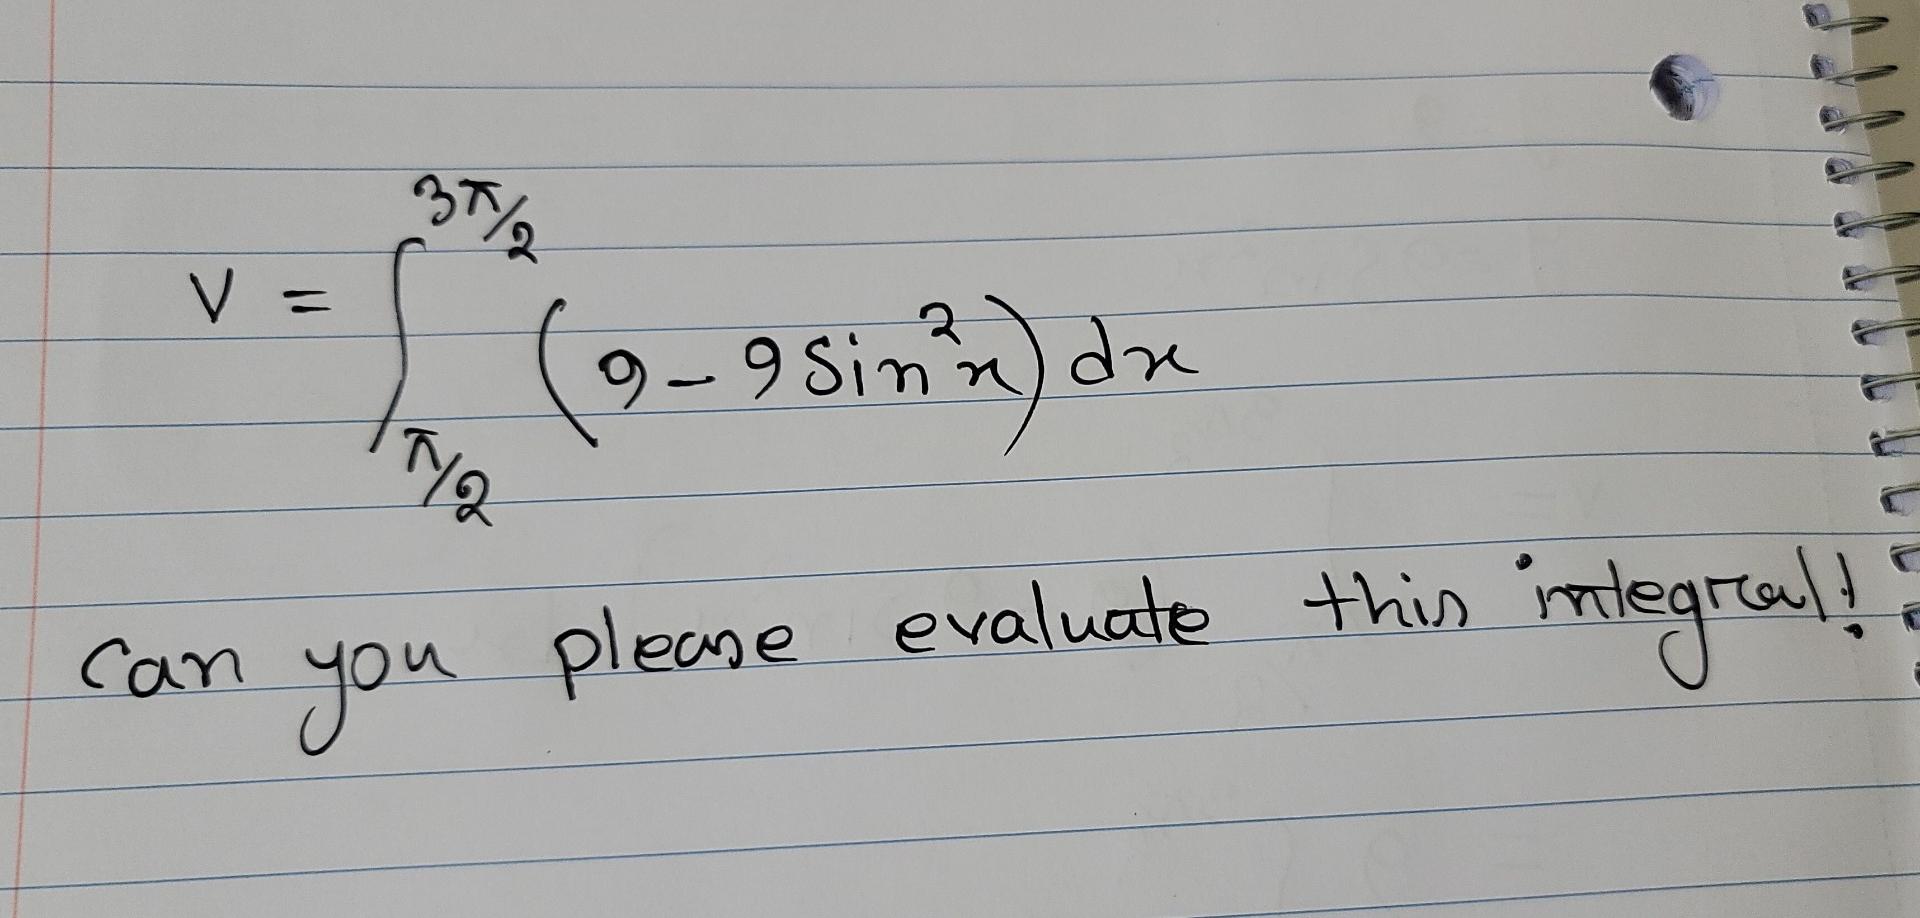 V = ∫_{π/2}^{3π/2} (9 - 9 Sin²x) dx
Can you please evaluate this integral!